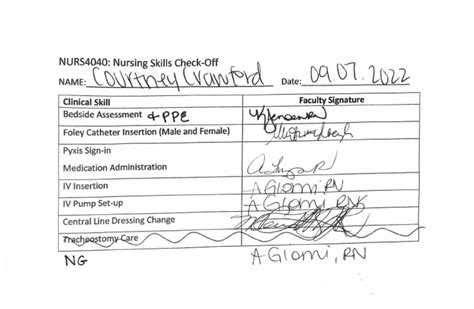 NURS4040: Nursing Skills Check-Off
NAME: Courtney Crawford Date: 09.07.2022
Clinical Skill Faculty Signature
Bedside Assessment & PPE
Foley Catheter Insertion (Male and Female)
Pyxis Sign-in
Medication Administration
IV Insertion A Glomi, RN
IV Pump Set-up A Glomi, RN
Central Line Dressing Change
Tracheostomy Care
NG A Glomi, RN